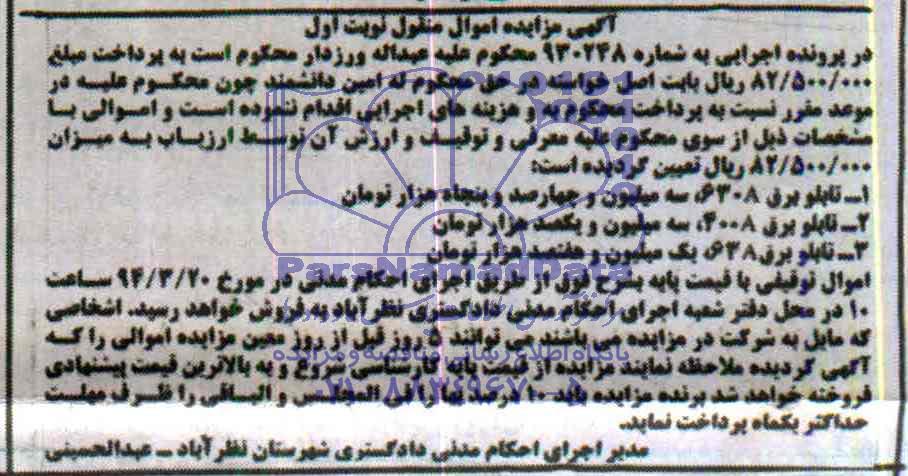 آگهی مزایده اموال منقول نوبت اول
در پرونده اجرایی به شماره ۹۳۰۲۴۸ محکوم علیه عبداله ورزدار محکوم است به پرداخت مبلغ
۸۲/۵۰۰/۰۰۰ ریال بابت اصل خواسته در حق محکوم له امین دانشمند چون محکوم علیه در
موعد مقرر نسبت به پرداخت محکوم به و هزینه های اجرایی اقدام ننموده است و اموالی با
مشخصات ذیل از سوی محکوم علیه معرفی و توقیف و ارزش آن توسط ارزیاب به میزان
۸۲/۵۰۰/۰۰۰ ریال تعیین گردیده است:
۱ـ تابلو برق ۶۳۰۸، سه میلیون و چهارصد و پنجاه هزار تومان
۲ـ تابلو برق ۴۰۰۸، سه میلیون و یکصد هزار تومان
۳ـ تابلو برق ۶۳۸، یک میلیون و هفتصد هزار تومان
اموال توقیفی با قیمت پایه بشرح فوق از طریق اجرای احکام مدنی در مورخ ۹۴/۳/۲۰ ساعت
۱۰ در محل دفتر شعبه اجرای احکام مدنی دادگستری نظرآباد به فروش خواهد رسید. اشخاصی
که مایل به شرکت در مزایده می باشند می توانند ۵ روز قبل از روز معین مزایده اموالی را که
آگهی گردیده ملاحظه نمایند مزایده از قیمت پایه کارشناسی شروع و به بالاترین قیمت پیشنهادی
فروخته خواهد شد برنده مزایده باید ۱۰ درصد بها را فی المجلس و الباقی را ظرف مهلت
حداکثر یکماه پرداخت نماید.
مدیر اجرای احکام مدنی دادگستری شهرستان نظرآباد ـ عبدالحسینی
ParsNamadData
پایگاه اطلاع رسانی مناقصه و مزایده
۰۲۱-۸۸۳۴۹۶۷۰-۵